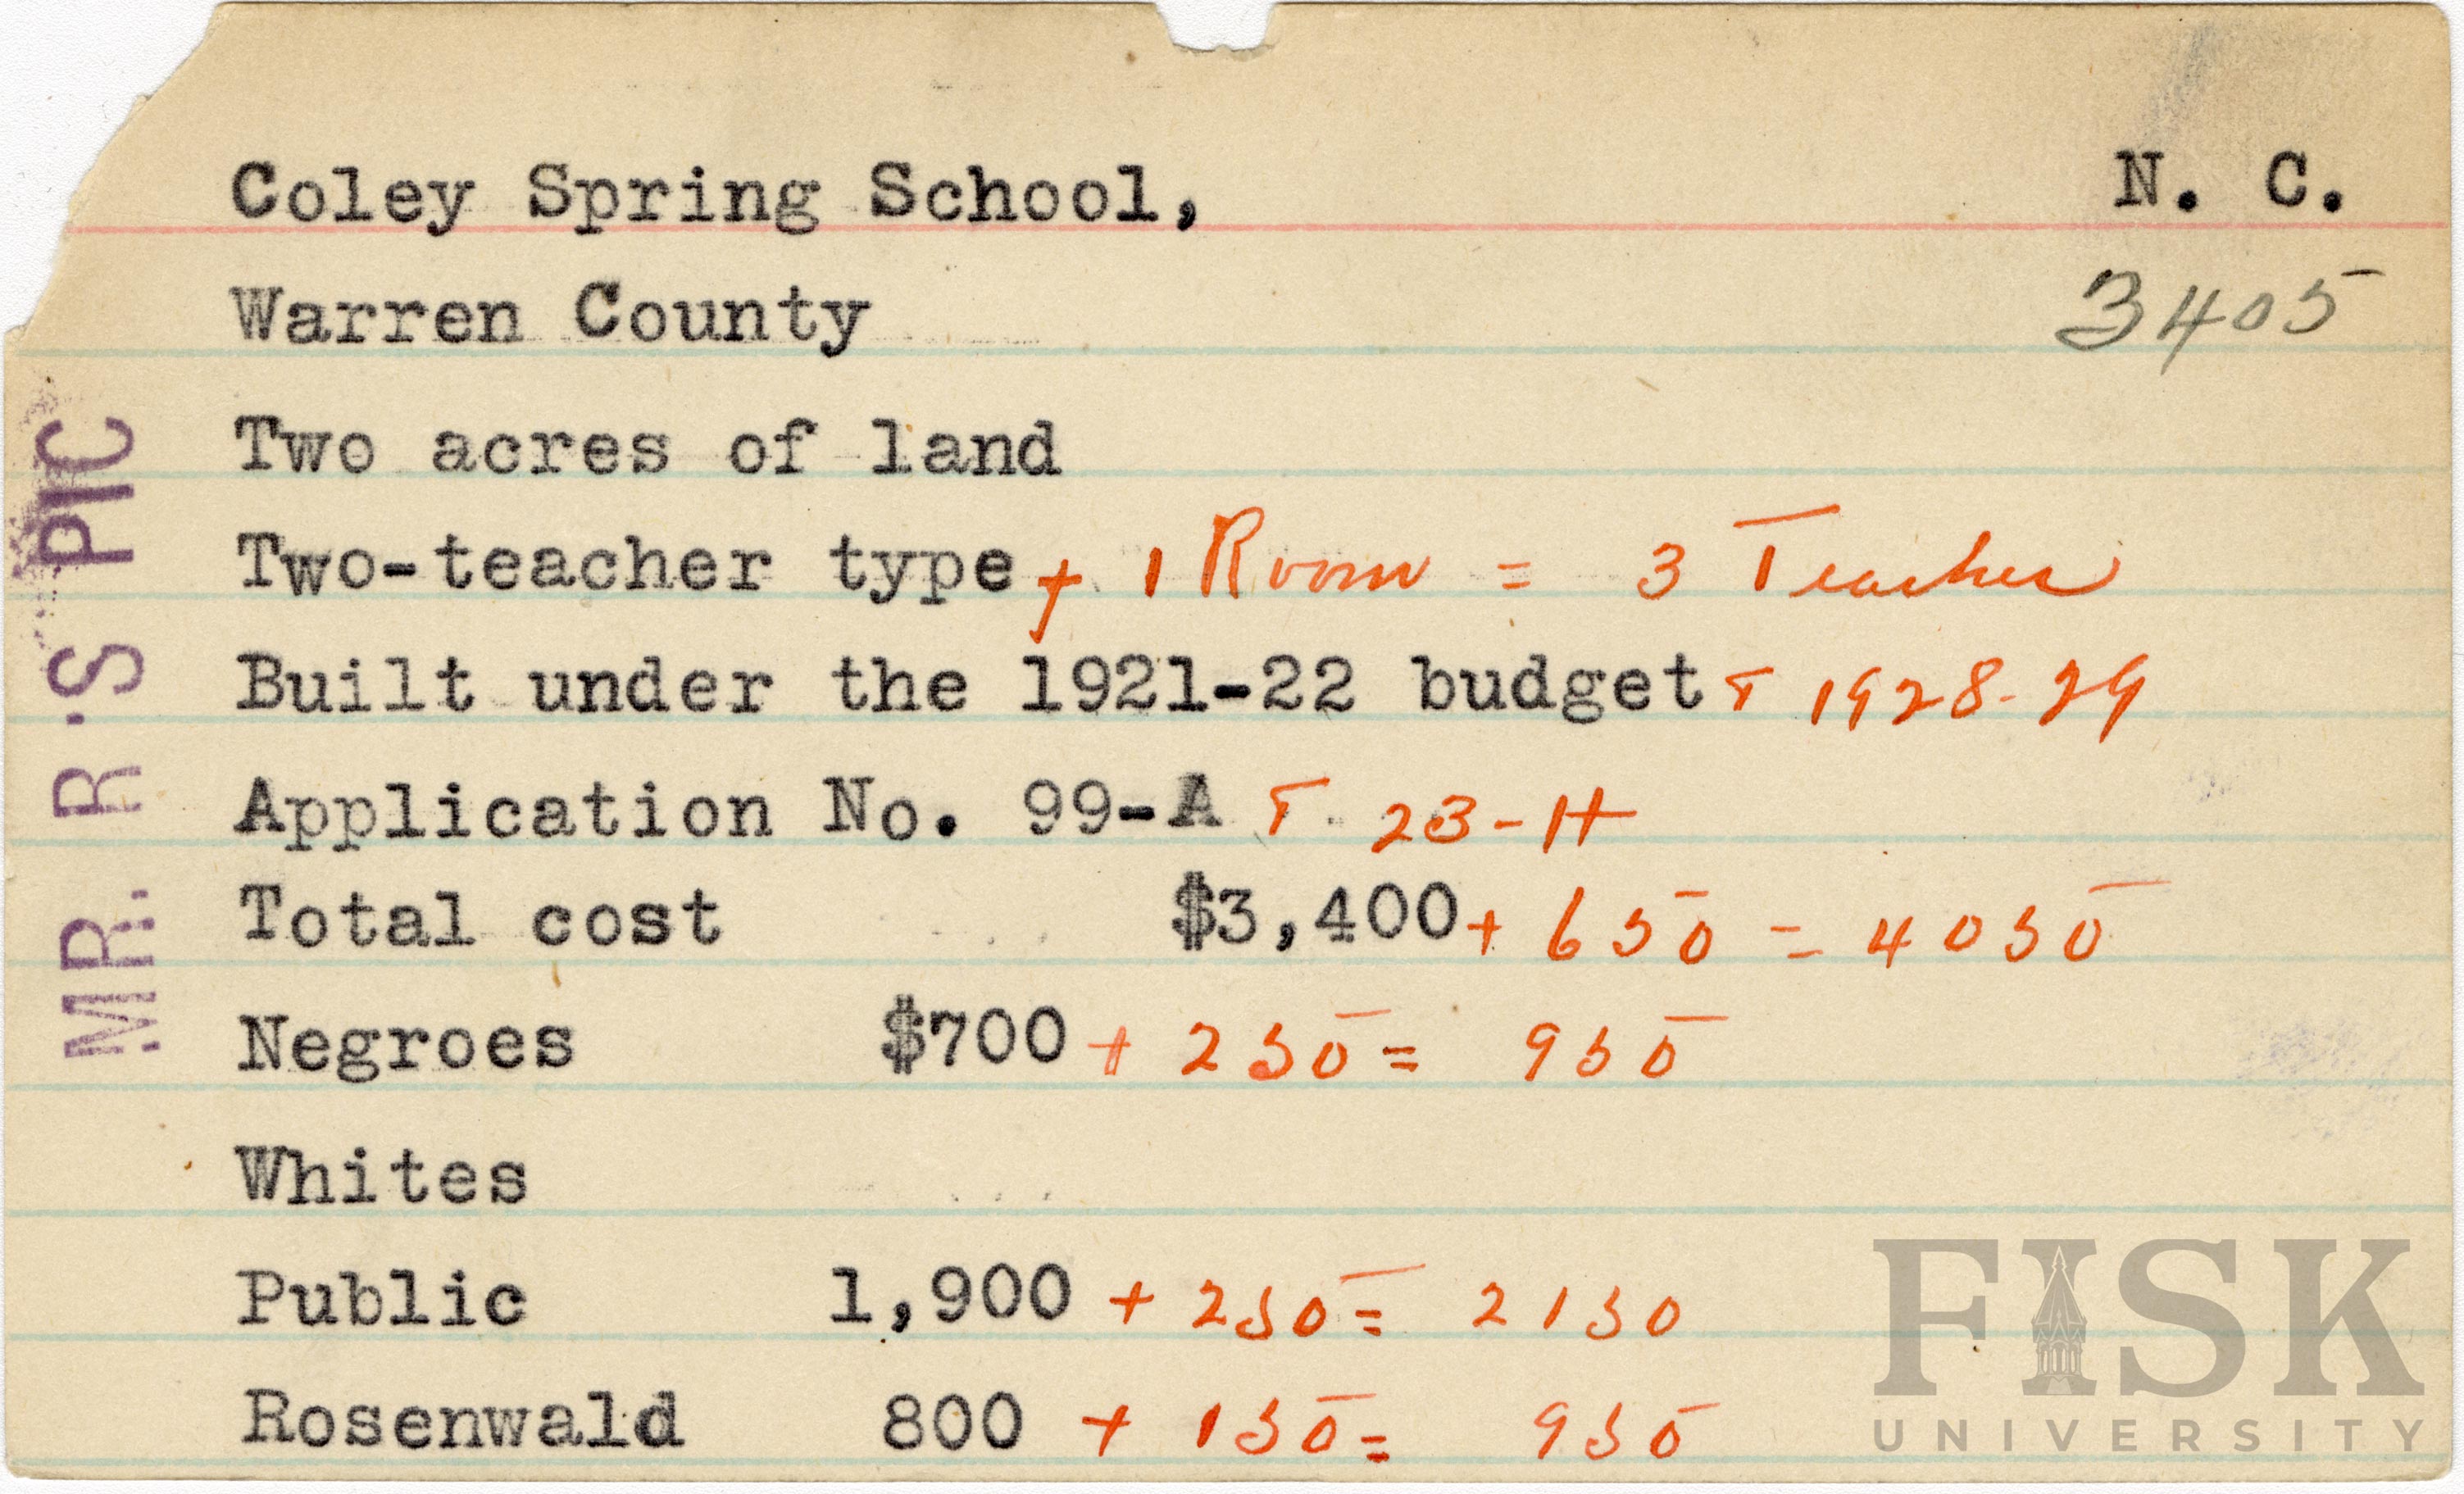 Coley Spring School, N. C.
Warren County 3405
Two acres of land
Two-teacher type + 1 Room = 3 Teacher
Built under the 1921-22 budget + 1928-29
Application No. 99-A + 23-H
Total cost $3,400 + 650 = 4050
Negroes $700 + 250 = 950
Whites
Public 1,900 + 250 = 2150
Rosenwald 800 + 150 = 950
MR. R'S PIC
FISK
UNIVERSITY